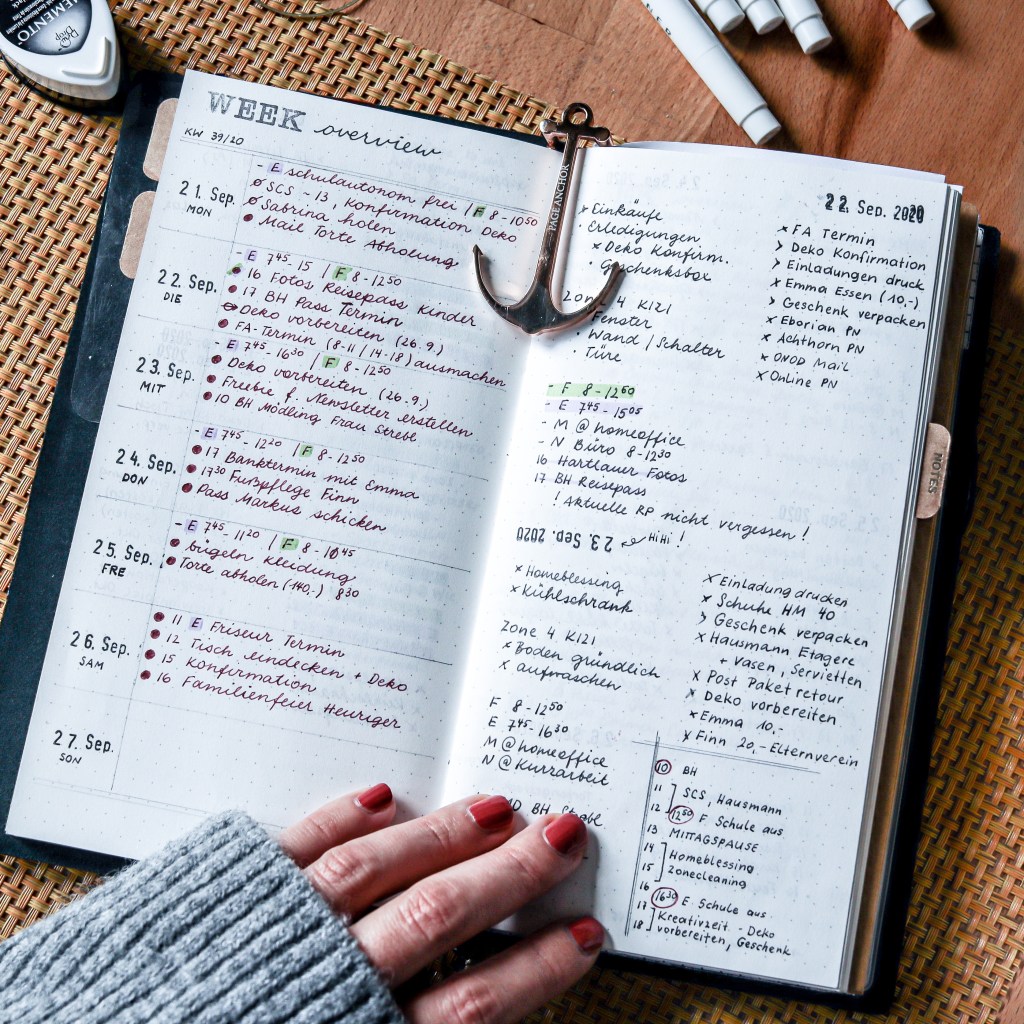 MEMENTO
WEEK overview
KW 39/20
21. Sep.
MON
- E schulautonom frei / F 8-10⁵⁰
ø SCS - 13, Konfirmation Deko
ø Sabrina holen
• Mail Torte Abholung
22. Sep.
DIE
- E 7⁴⁵-15 / F 8-12⁵⁰
• 16 Fotos Reisepass Kinder
• 17 BH Pass Termin
Deko vorbereiten (26.9.)
• FA-Termin (8-11/14-18) ausmachen
23. Sep.
MIT
- E 7⁴⁵-16³⁰ / F 8-12⁵⁰
• Deko vorbereiten (26.9.)
• Freebie f. Newsletter erstellen
• 10 BH Mödling Frau Strebl
24. Sep.
DON
- E 7⁴⁵-12²⁰ / F 8-12⁵⁰
• 17 Banktermin mit Emma
• 17³⁰ Fußpflege Finn
• Pass Markus schicken
25. Sep.
FRE
- E 7⁴⁵-11²⁰ / F 8-10⁴⁵
• bügeln Kleidung
• Torte abholen (140,-) 8³⁰
26. Sep.
SAM
• 11 E Friseur Termin
• 12 Tisch eindecken + Deko
• 15 Konfirmation
• 16 Familienfeier Heuriger
27. Sep.
SON
PAGE ANCHOR
22. Sep. 2020
x Einkäufe
• Erledigungen
x Deko Konfirm.
• Geschenksbox
Zone 4 KIZI
• Fenster
• Wand / Schalter
• Türe
x FA Termin
> Deko Konfirmation
> Einladungen druck
x Emma Essen (10,-)
> Geschenk verpacken
x Eborian PN
x Achthorn PN
x ONOD Mail
x Online PN
- F 8-12⁵⁰
- E 7⁴⁵-15⁰⁵
- M @ homeoffice
- N Büro 8-12³⁰
16 Hartlauer Fotos
17 BH Reisepass
! Aktuelle RP nicht vergessen !
23. Sep. 2020
HiHi !
x Homeblessing
x Kühlschrank
Zone 4 KIZI
x Boden gründlich
x aufwaschen
F 8-12⁵⁰
E 7⁴⁵-16³⁰
M @ homeoffice
N @ Kurzarbeit
10 BH Strebl
x Einladung drucken
x Schuhe HM 40
> Geschenk verpacken
x Hausmann Etagere
+ Vasen, Servietten
x Post Paket retour
x Deko vorbereiten
x Emma 10,-
x Finn 20,- Elternverein
10 BH
11
SCS, Hausmann
12
12⁵⁰ F Schule aus
13 MITTAGSPAUSE
14 Homeblessing
15 Zonecleaning
16
16³⁰ E Schule aus
17 Kreativzeit - Deko
18 vorbereiten, Geschenk
NOTES